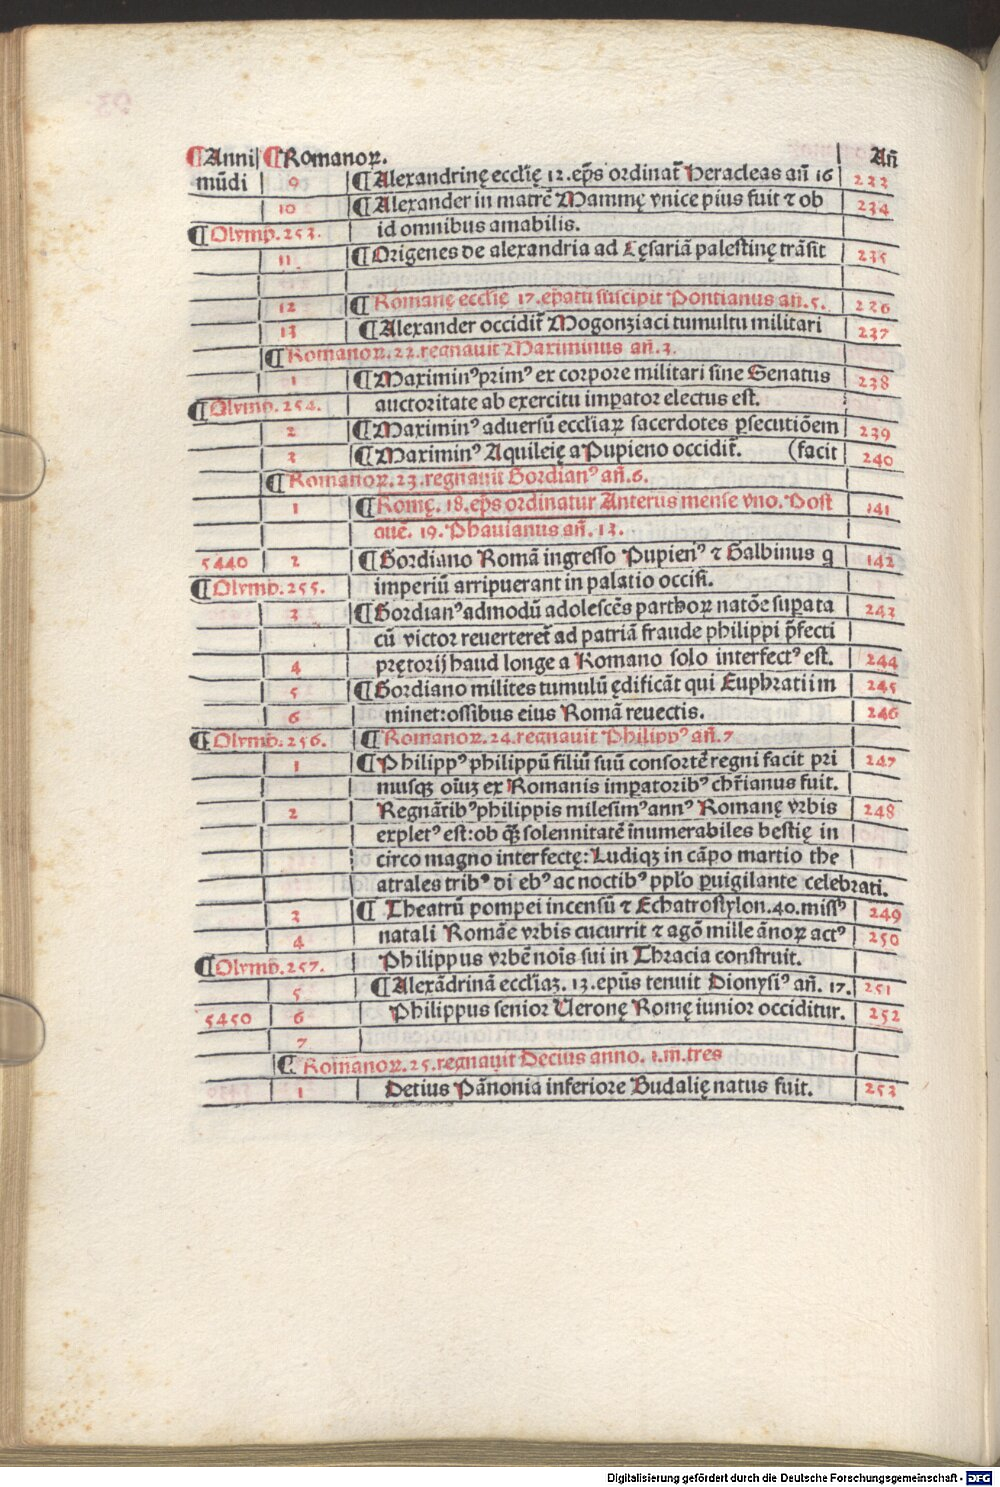 ¶Anni ¶Romanoꝝ. Añ
mūdi 9 ¶Alexandrinę eccłię 12.ep̄s ordinat᷑ Heracleas añ 16 233
10 ¶Alexander in matrē Mammę vnice pius fuit ⁊ ob 234
¶Olymp.253. id omnibus amabilis.
11 ¶Origenes de alexandria ad Cęsariā palestinę trāsit 235
12 ¶Romanę eccłię 17.ep̄atū suscipit Pontianus añ.5. 236
13 ¶Alexander occidit᷑ Mogonziaci tumultu militari 237
¶Romanoꝝ.22.regnauit Maximinus añ.3.
1 ¶Maximinꝰ primꝰ ex corpore militari sine Senatus 238
¶Olymp.254. auctoritate ab exercitu imꝑator electus est.
2 ¶Maximinꝰ aduersū eccliaꝝ sacerdotes ꝑsecutiōem 239
3 ¶Maximinꝰ Aquileię a Pupieno occidit᷑. (facit 240
¶Romanoꝝ.23.regnauit Gordianꝰ añ.6.
1 ¶Romę.18.ep̄s ordinatur Anterus mense vno.Post 141
quē.19.Phauianus añ.13.
5440 2 ¶Gordiano Romā ingresso Pupienꝰ ⁊ Galbinus q 142
¶Olymp.255. imperiū arripuerant in palatio occisi.
3 ¶Gordianꝰ admodū adolescēs parthoꝝ natōe suꝑata 243
cū victor reuerteret᷑ ad patriā fraude philippi p̄fecti
4 prętorij haud longe a Romano solo interfectꝰ est. 244
5 ¶Gordiano milites tumulū ędificāt qui Euphrati im 245
6 minet:ossibus eius Romā reuectis. 246
¶Olymp.256. ¶Romanoꝝ.24.regnauit Philippꝰ añ.7
1 ¶Philippꝰ philippū filiū suū consortē regni facit pri 247
musqꝫ oīuꝫ ex Romanis imꝑatoribꝰ chr̄ianus fuit.
2 Regnātibꝰ philippis milesimꝰ annꝰ Romanę vrbis 248
expletꝰ est:ob qꝫ̄ solennitatē īnumerabiles bestię in
circo magno interfectę:Ludiqꝫ in cāpo martio the
atrales tribꝰ diebꝰ ac noctibꝰ ppło ꝑuigilante celebrati.
3 ¶Theatrū pompei incensū ⁊ Echatrostylon.40.missꝰ 249
4 natali Romāe vrbis cucurrit ⁊ agō mille ānoꝝ actꝰ 250
¶Olymp.257. Philippus vrbē noīs sui in Thracia construit.
5 ¶Alexādrinā eccliaꝫ.13.ep̄us tenuit Dionysiꝰ añ.17. 251
5450 6 Philippus senior Veronę Romę iunior occiditur. 252
7
¶Romanoꝝ.25.regnauit Decius anno.1.m̄.tres
1 Detius Pānonia inferiore Budalię natus fuit. 253
Digitalisierung gefördert durch die Deutsche Forschungsgemeinschaft - DFG